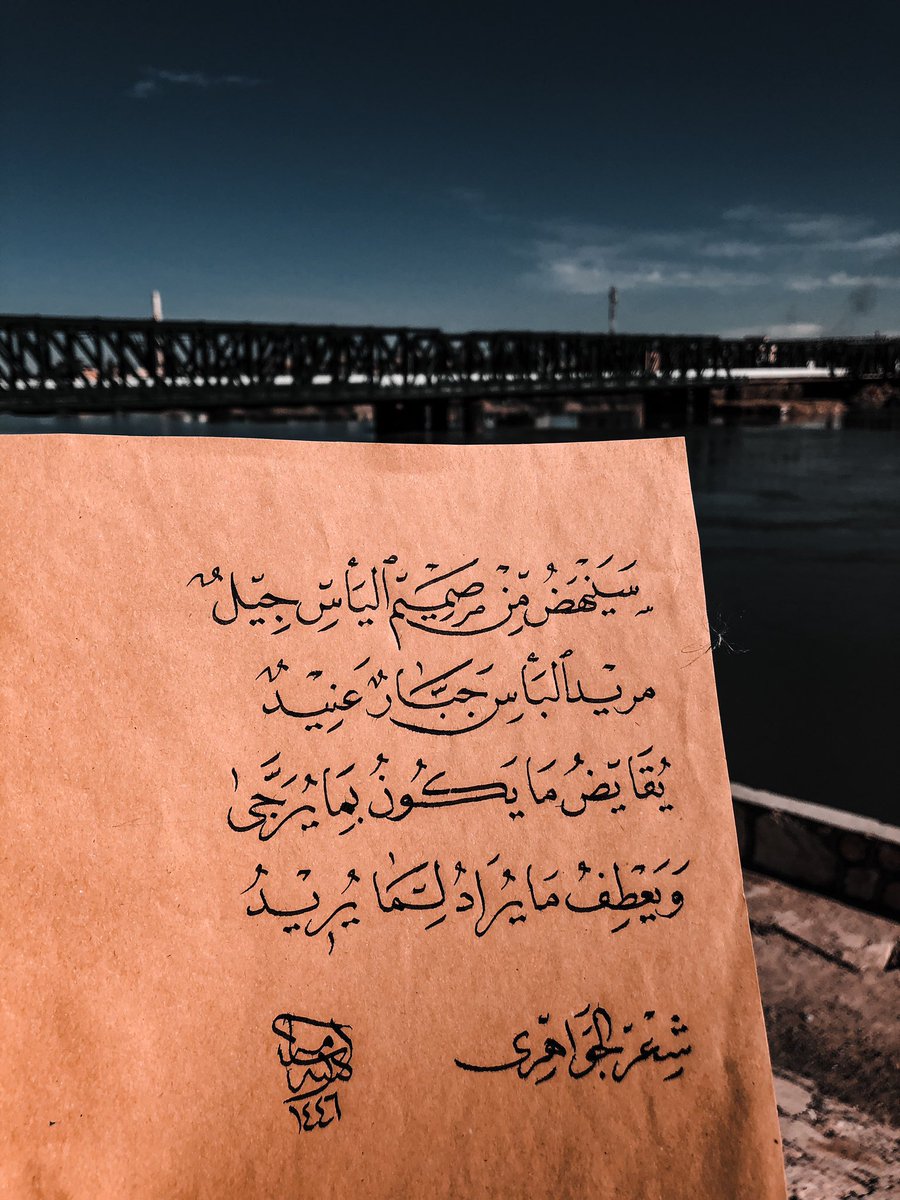 سَيَنْهَضُ مِنْ صَمِيمِ ٱليَأْسِ جِيلٌ
مريْد ٱلبَأْسِ جَبَّارٌ عَنِيْدٌ
يُقَايِضُ مَا يَكُونُ بِمَا يُرَجَّى
وَيَعْطِفُ مَا يُرَادُ لِمَا يُرِيْدُ
شِعْر الجَوَاهِرِي
كتبه
١٤٤٦